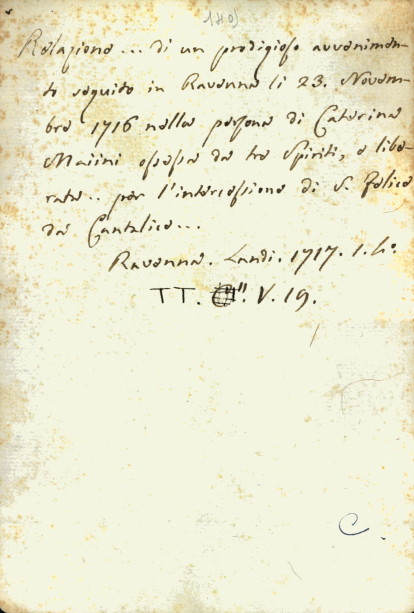 1409
Relazione... di un prodigioso avvenimen-
to seguito in Ravenna li 23. Novem-
bre 1716 nella persona di Caterina
Maiini ossessa da tre Spiriti, e libe-
rata.. per l'intercessione di S. Felice
da Cantalice...
Ravenna. Landi. 1717. 1. 4°.
TT. V. 19.
C